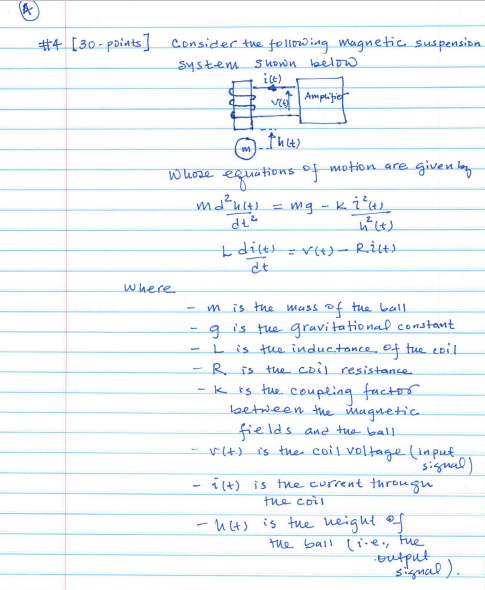 4
#4 [30-points] Consider the following magnetic suspension
system shown below
i(t)
v(t) Amplifier
m h(t)
Whose equations of motion are given by
m d²h(t)/dt² = mg - k i²(t)/h²(t)
L di(t)/dt = v(t) - Ri(t)
where
- m is the mass of the ball
- g is the gravitational constant
- L is the inductance of the coil
- R is the coil resistance
- k is the coupling factor
between the magnetic
fields and the ball
- v(t) is the coil voltage (input
signal)
- i(t) is the current through
the coil
- h(t) is the height of
the ball (i.e., the
output
signal).